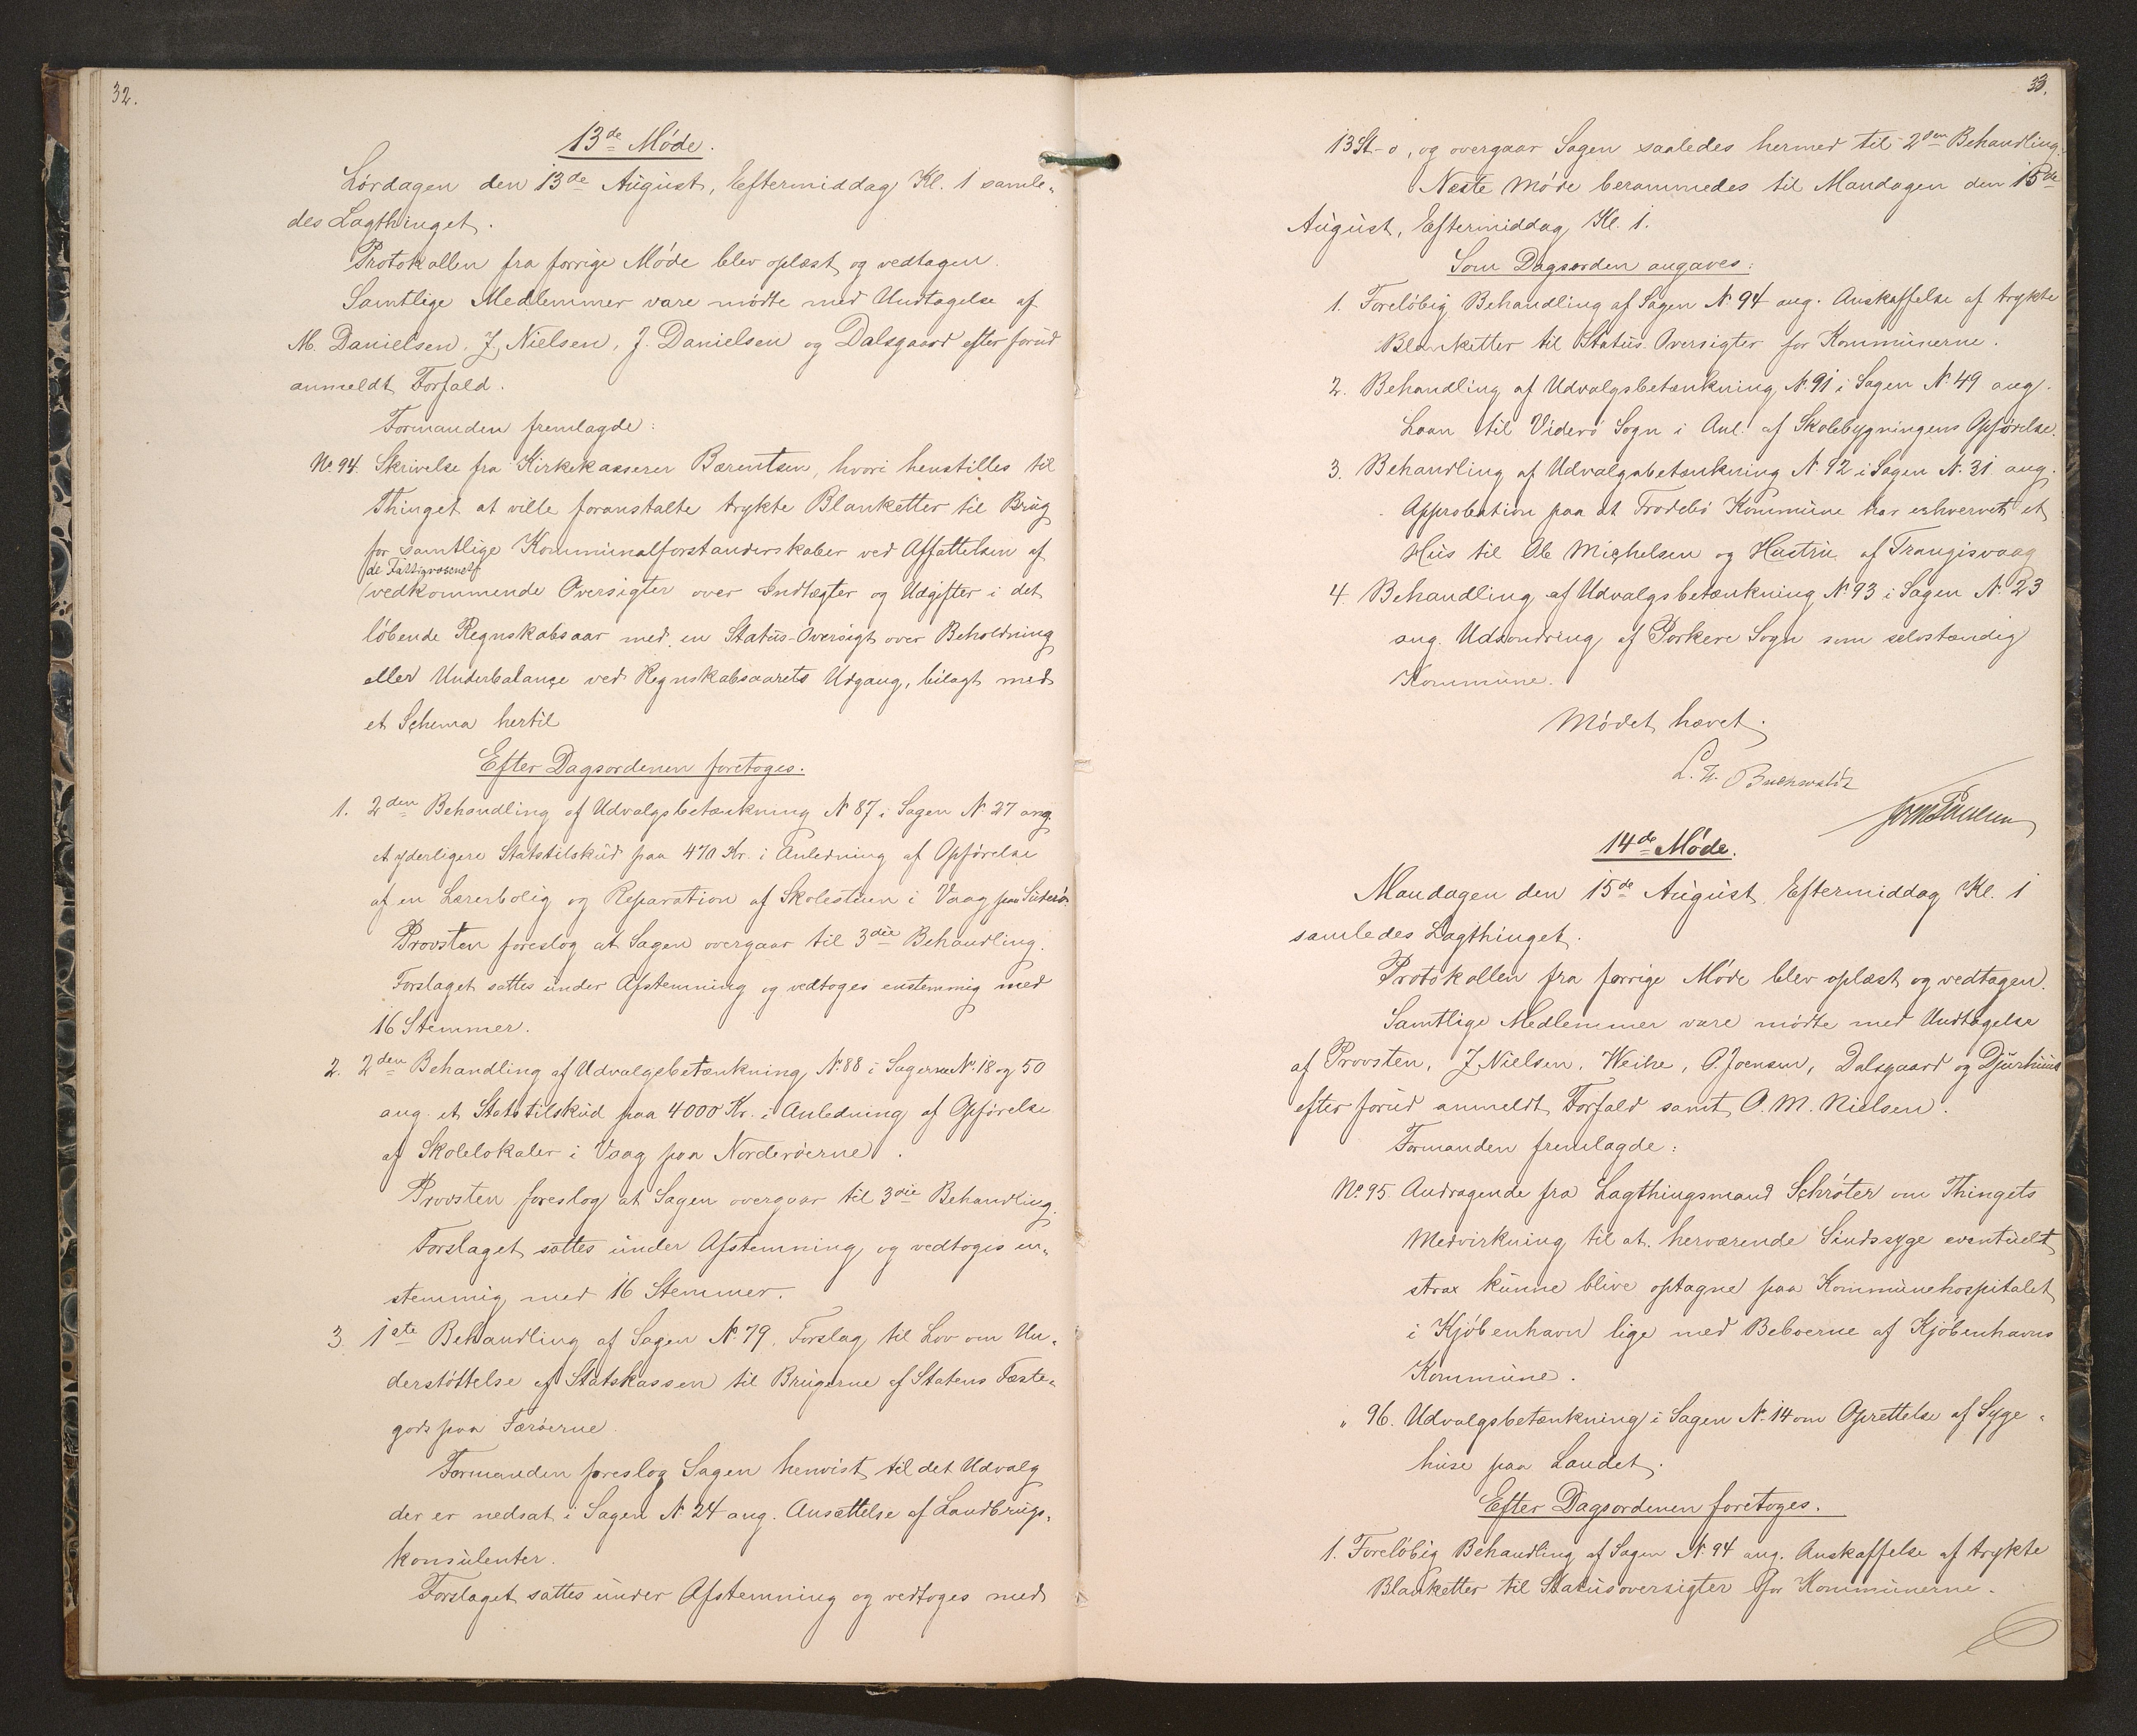 32.
13de Møde.
Lørdagen den 13de August, Eftermiddag Kl. 1 samle-
des Lagthinget.
Protokollen fra forrige Møde blev oplæst og vedtagen.
Samtlige Medlemmer vare mødte med Undtagelse af
M. Danielsen, J. Nielsen, J. Danielsen og Dalsgaard efter forud
anmeldt Forfald.
Formanden fremlagde:
No. 94. Skrivelse fra Kirkekasserer Bærentsen, hvori henstilles til
Thinget at ville foranstalte trykte Blanketter til Brug
for samtlige Kommunalforstanderskaber ved Affattelsen af
de Fattigvæsenet
vedkommende Oversigter over Indtægter og Udgifter i det
løbende Regnskabsaar med en Status-Oversigt over Beholdning
eller Underbalance ved Regnskabsaarets Udgang, bilagt med
et Schema hertil
Efter Dagsordenen foretoges.
1. 2den Behandling af Udvalgsbetænkning No 87 i Sagen No 27 ang
et yderligere Statstilskud paa 470 Kr. i Anledning af Opførelse
af en Lærerbolig og Reparation af Skolestuen i Vaag paa Suderø.
Provsten foreslog at Sagen overgaar til 3die Behandling.
Forslaget sattes under Afstemning og vedtoges enstemmig med
16 Stemmer.
2. 2den Behandling af Udvalgsbetænkning No. 88 i Sagerne No. 18 og 50
ang. et Statstilskud paa 4000 Kr. i Anledning af Opførelse
af Skolelokaler i Vaag paa Norderøerne.
Provsten foreslog at Sagen overgaar til 3die Behandling.
Forslaget sattes under Afstemning og vedtoges en-
stemmig med 16 Stemmer.
3. 1ste Behandling af Sagen No. 79. Forslag til Lov om Un-
derstøttelse af Statskassen til Brugerne af Statens Fæste-
gods paa Færøerne.
Formanden foreslog Sagen henvist til det Udvalg
der er nedsat i Sagen No 24 ang. Ansættelse af Landbrugs-
konsulenter.
Forslaget sattes under Afstemning og vedtoges med
33.
13 St - o, og overgaar Sagen saaledes hermed til 2den Behandling.
Næste Møde berammedes til Mandagen den 15de
August, Eftermiddag Kl. 1.
Som Dagsorden angaves:
1. Foreløbig Behandling af Sagen No 94 ang. Anskaffelse af trykte
Blanketter til Status-Oversigter for Kommunerne.
2. Behandling af Udvalgsbetænkning No. 91 i Sagen No 49 ang.
Laan til Viderø Sogn i Anl. af Skolebygningens Opførelse.
3. Behandling af Udvalgsbetænkning No 92 i Sagen No. 31 ang.
Approbation paa at Frodebø Kommune har erhvervet et
Hus til Michelsen og Hustru af Trangisvaag
4. Behandling af Udvalgsbetænkning No 93 i Sagen No. 23
ang. Udsondring af Porkere Sogn som selvstændig
Kommune.
Mødet hævet.
L. Buchwaldt
14de Møde.
Mandagen den 15de August, Eftermiddag Kl. 1
samledes Lagthinget.
Protokollen fra forrige Møde blev oplæst og vedtagen.
Samtlige Medlemmer vare mødte med Undtagelse
af Provsten, J. Nielsen, Weihe, O. Joensen, Dalsgaard og Djurhuus
efter forud anmeldt Forfald samt O. M. Nielsen.
Formanden fremlagde:
No. 95. Andragende fra Lagthingsmand Schrøter om Thingets
Medvirkning til at herværende Sindssyge eventuelt
strax kunne blive optagne paa Kommunehospitalet
i Kjøbenhavn lige med Beboerne af Kjøbenhavns
Kommune.
" 96. Udvalgsbetænkning i Sagen No. 14 om Oprettelse af Syge-
huse paa Landet.
Efter Dagsordenen foretoges.
1. Foreløbig Behandling af Sagen No. 94 ang. Anskaffelse af trykte
Blanketter til Statusoversigter for Kommunerne.